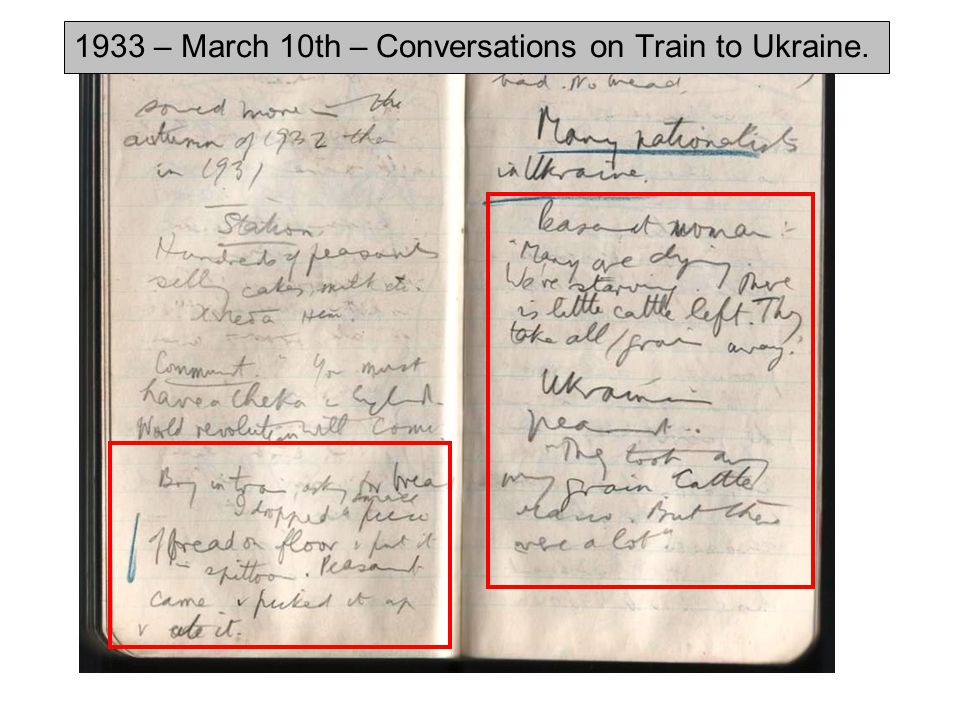 1933 – March 10th – Conversations on Train to Ukraine.
sowed more in the
autumn of 1932 than
in 1931
Station
Hundreds of peasants
selling cakes, milk etc.
Communist. "You must
have a Cheka in England.
World revolution will come.
Boy in train asking for bread
I dropped a small piece
of bread on floor & put it
in spittoon. Peasant
came & picked it up
& ate it.
bad. No bread.
Many nationalists
in Ukraine.
Peasant woman :-
"Many are dying.
We're starving. There
is little cattle left. They
take all grain away."
Ukrainian
peasant..
"They took away
my grain Cattle
But there
were a lot".